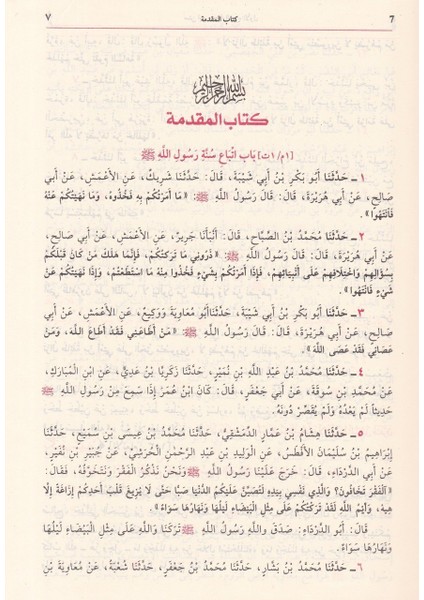 ٧ كتاب المقدمة 7
بسم الله الرحمن الرحيم
كتاب المقدمة
[١/م١ت] بَاب اتِّبَاعِ سُنَّةِ رَسُولِ اللَّهِ ﷺ
١ ـ حَدَّثَنَا أَبُو بَكْرِ بْنُ أَبِي شَيْبَةَ، قَالَ: حَدَّثَنَا شَرِيكٌ، عَنِ الأَعْمَشِ، عَنْ أَبِي
صَالِحٍ، عَنْ أَبِي هُرَيْرَةَ، قَالَ: قَالَ رَسُولُ اللَّهِ ﷺ: «مَا أَمَرْتُكُمْ بِهِ فَخُذُوهُ، وَمَا نَهَيْتُكُمْ عَنْهُ
فَانْتَهُوا».
٢ ـ حَدَّثَنَا مُحَمَّدُ بْنُ الصَّبَّاحِ، قَالَ: أَنْبَأَنَا جَرِيرٌ، عَنِ الأَعْمَشِ، عَنْ أَبِي صَالِحٍ،
عَنْ أَبِي هُرَيْرَةَ، قَالَ: قَالَ رَسُولُ اللَّهِ ﷺ: «ذَرُونِي مَا تَرَكْتُكُمْ، فَإِنَّمَا هَلَكَ مَنْ كَانَ قَبْلَكُمْ
بِسُؤَالِهِمْ وَاخْتِلَافِهِمْ عَلَى أَنْبِيَائِهِمْ، فَإِذَا أَمَرْتُكُمْ بِشَيْءٍ فَخُذُوا مِنْهُ مَا اسْتَطَعْتُمْ، وَإِذَا نَهَيْتُكُمْ عَنْ
شَيْءٍ فَانْتَهُوا».
٣ ـ حَدَّثَنَا أَبُو بَكْرِ بْنُ أَبِي شَيْبَةَ، حَدَّثَنَا أَبُو مُعَاوِيَةَ وَوَكِيعٌ، عَنِ الأَعْمَشِ، عَنْ أَبِي
صَالِحٍ، عَنْ أَبِي هُرَيْرَةَ، قَالَ: قَالَ رَسُولُ اللَّهِ ﷺ: «مَنْ أَطَاعَنِي فَقَدْ أَطَاعَ اللَّهَ، وَمَنْ
عَصَانِي فَقَدْ عَصَى اللَّهَ».
٤ ـ حَدَّثَنَا مُحَمَّدُ بْنُ عَبْدِ اللَّهِ بْنِ نُمَيْرٍ، حَدَّثَنَا زَكَرِيَّا بْنُ عَدِيٍّ، عَنِ ابْنِ الْمُبَارَكِ،
عَنْ مُحَمَّدِ بْنِ سُوقَةَ، عَنْ أَبِي جَعْفَرٍ، قَالَ: كَانَ ابْنُ عُمَرَ إِذَا سَمِعَ مِنْ رَسُولِ اللَّهِ ﷺ
حَدِيثاً لَمْ يَعْدُهُ وَلَمْ يُقَصِّرْ دُونَهُ.
٥ ـ حَدَّثَنَا هِشَامُ بْنُ عَمَّارٍ الدِّمَشْقِيُّ، حَدَّثَنَا مُحَمَّدُ بْنُ عِيسَى بْنِ سُمَيْعٍ، حَدَّثَنَا
إِبْرَاهِيمُ بْنُ سُلَيْمَانَ الأَفْطَسُ، عَنِ الْوَلِيدِ بْنِ عَبْدِ الرَّحْمَنِ الْجُرَشِيِّ، عَنْ جُبَيْرِ بْنِ نُفَيْرٍ،
عَنْ أَبِي الدَّرْدَاءِ، قَالَ: خَرَجَ عَلَيْنَا رَسُولُ اللَّهِ ﷺ وَنَحْنُ نَذْكُرُ الْفَقْرَ وَنَتَخَوَّفُهُ، فَقَالَ:
«آلْفَقْرَ تَخَافُونَ؟ وَالَّذِي نَفْسِي بِيَدِهِ لَتُصَبَّنَّ عَلَيْكُمُ الدُّنْيَا صَبًّا حَتَّى لَا يُزِيغَ قَلْبَ أَحَدِكُمْ إِزَاغَةً إِلَّا
هِيَهْ، وَأَيْمُ اللَّهِ لَقَدْ تَرَكْتُكُمْ عَلَى مِثْلِ الْبَيْضَاءِ لَيْلُهَا وَنَهَارُهَا سَوَاءٌ».
قَالَ أَبُو الدَّرْدَاءِ: صَدَقَ وَاللَّهِ رَسُولُ اللَّهِ ﷺ تَرَكَنَا وَاللَّهِ عَلَى مِثْلِ الْبَيْضَاءِ لَيْلُهَا
وَنَهَارُهَا سَوَاءٌ.
٦ ـ حَدَّثَنَا مُحَمَّدُ بْنُ بَشَّارٍ، حَدَّثَنَا مُحَمَّدُ بْنُ جَعْفَرٍ، حَدَّثَنَا شُعْبَةُ، عَنْ مُعَاوِيَةَ بْنِ